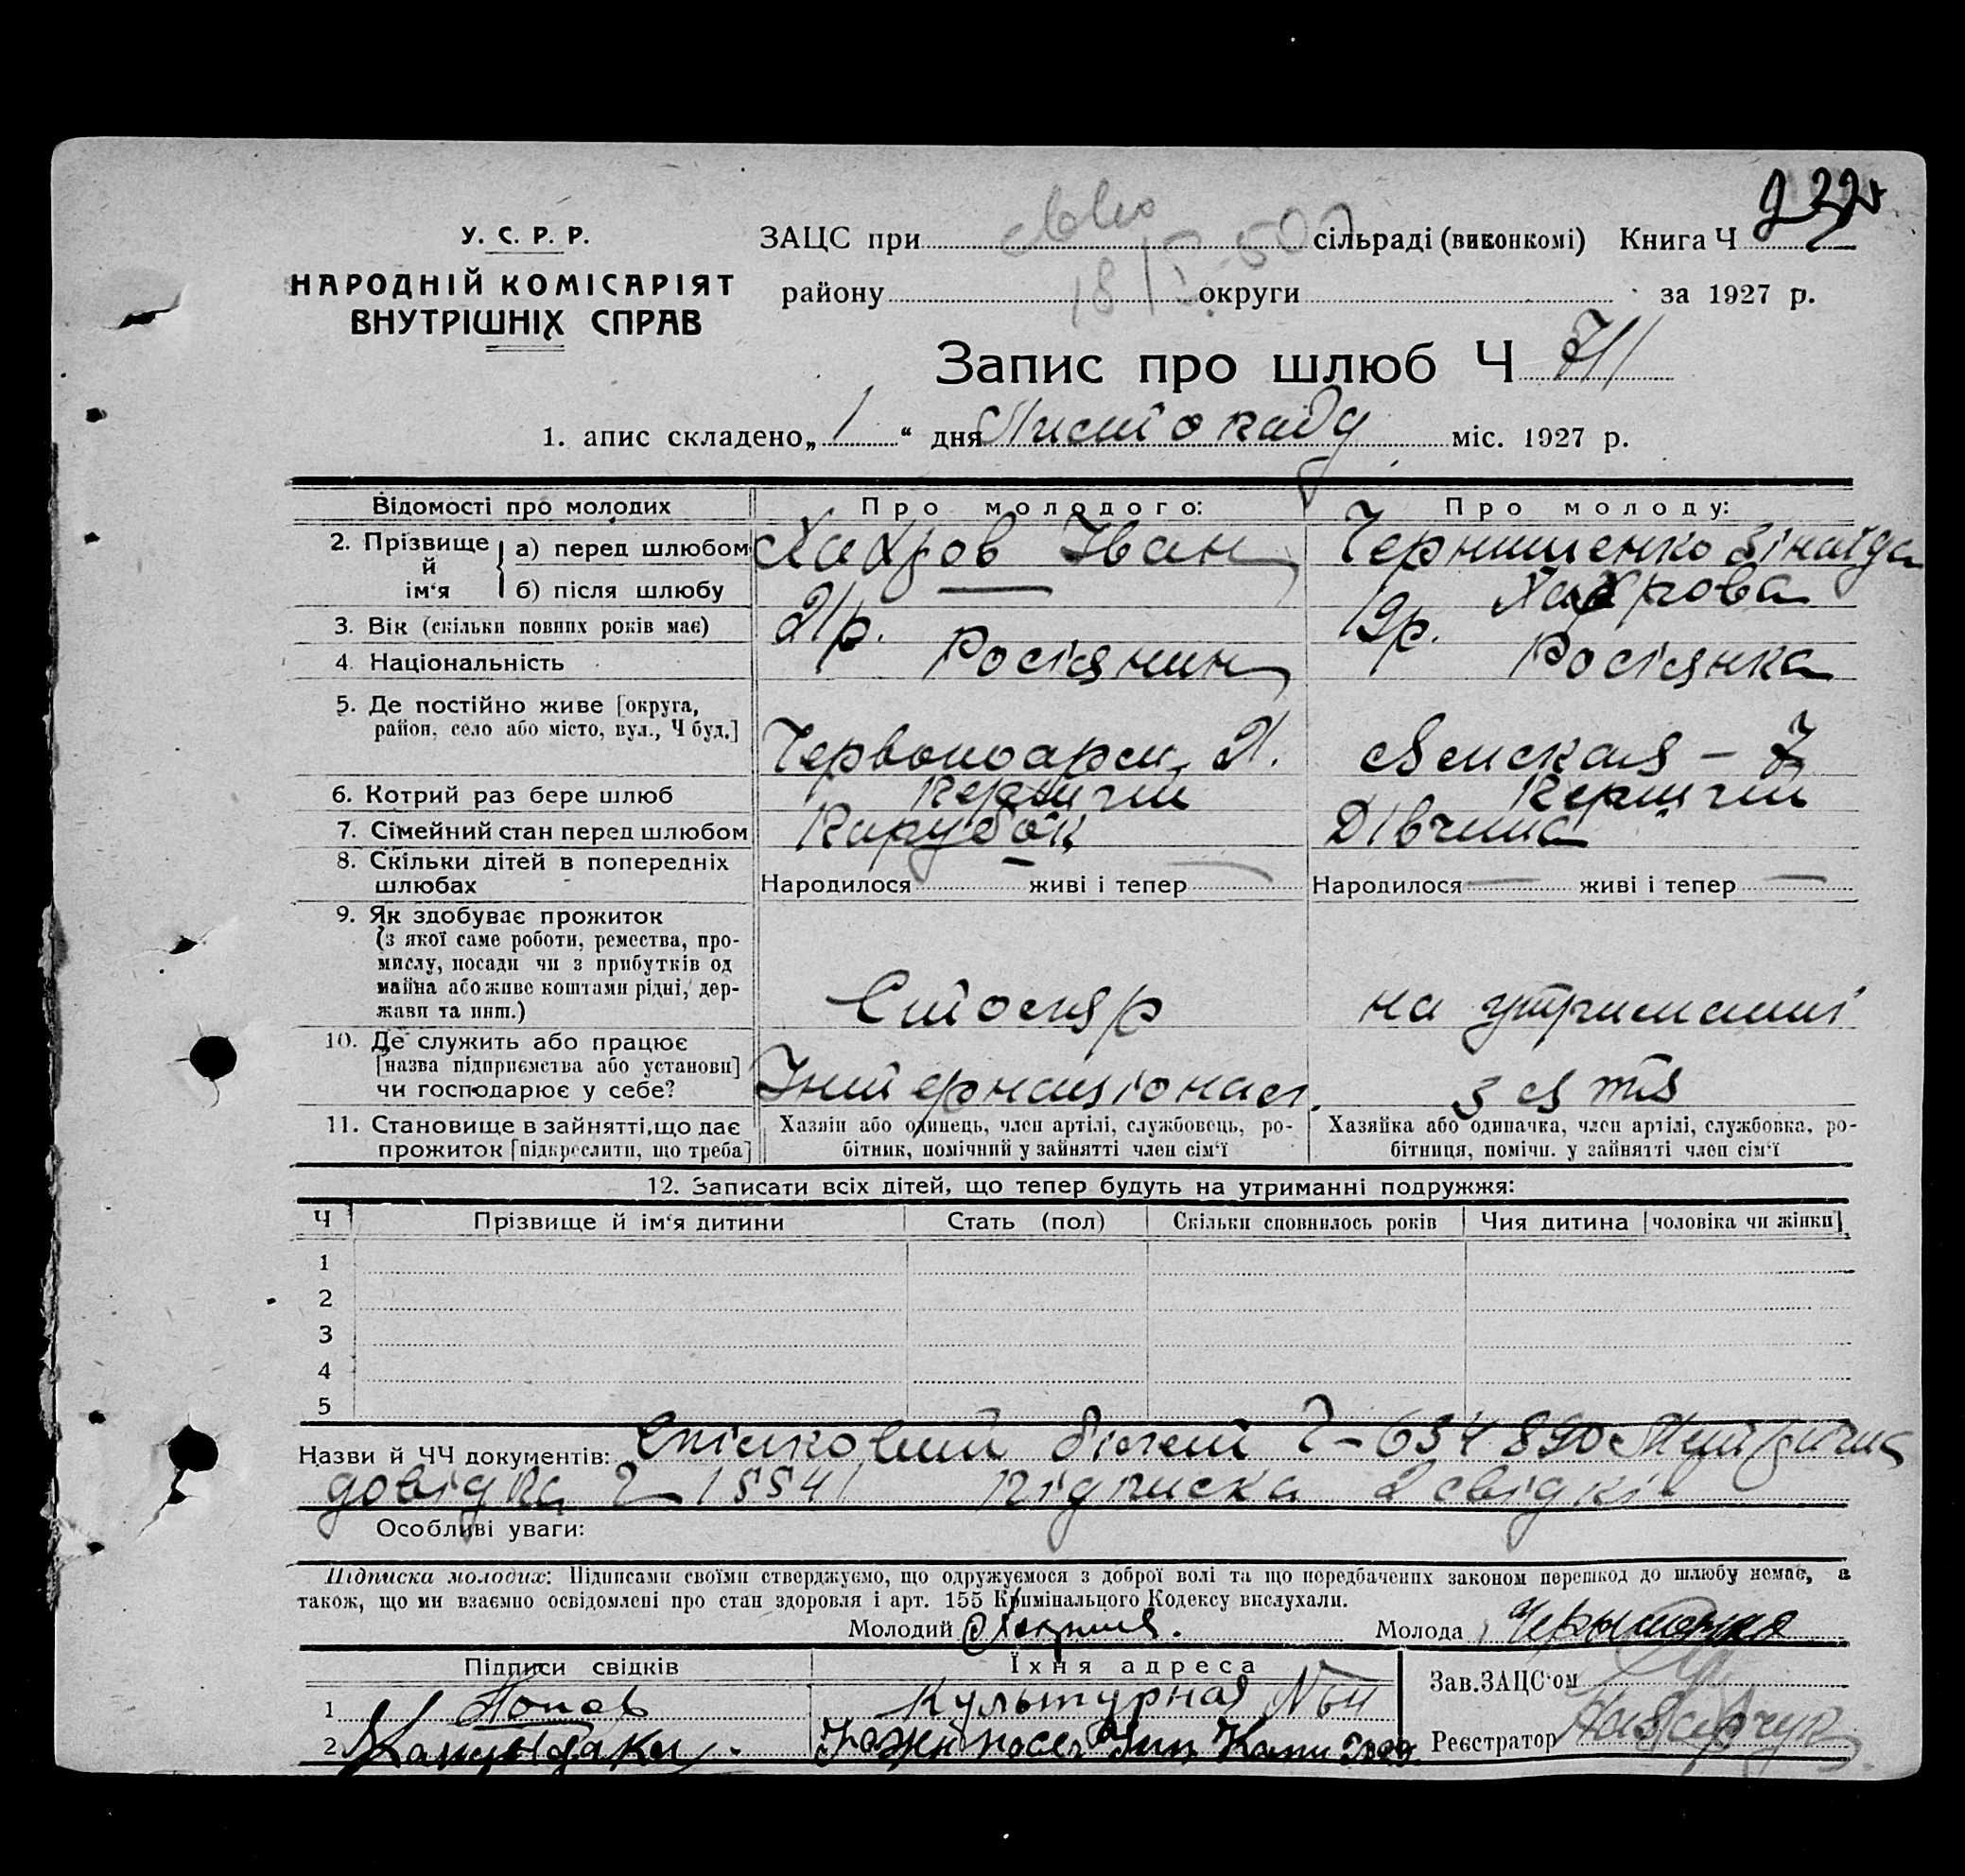 У. С. Р. Р.
НАРОДНІЙ КОМІСАРІЯТ
ВНУТРІШНІХ СПРАВ
ЗАЦС при сільраді (виконкомі) Книга Ч
району округи за 1927 р.
18/
Запис про шлюб Ч 711
1. апис складено „ 1 “ дня Листопаду міс. 1927 р.
Відомості про молодих Про молодого: Про молоду:
2. Прізвище й ім‘я
а) перед шлюбом Іван Чернишенко Зінаїда
б) після шлюбу —
3. Вік (скільки повних років має) 21 р. 19 р.
4. Національність Росіянин Росіянка
5. Де постійно живе [округа,
район, село або місто, вул., Ч буд.] Червоноарм. 21. – 7
6. Котрий раз бере шлюб Перший Перший
7. Сімейний стан перед шлюбом Парубок Дівчина
8. Скільки дітей в попередніх
шлюбах Народилося живі і тепер — Народилося — живі і тепер —
9. Як здобуває прожиток
(з якої саме роботи, ремества, про-
мислу, посади чи з прибутків од
майна або живе коштами рідні, дер-
жави та инш.) Столяр на утриманні
10. Де служить або працює
[назва підприємства або установи]
чи господарює у себе? Інтернаціонал. зятя
11. Становище в зайнятті, що дає
прожиток [підкреслити, що треба]
Хазяїн або одинець, член артілі, службовець, ро-
бітник, помічний у зайнятті член сім‘ї
Хазяйка або одиначка, член артілі, службовка, ро-
бітниця, помічн. у зайнятті член сім‘ї
12. Записати всіх дітей, що тепер будуть на утриманні подружжя:
Ч Прізвище й ім‘я дитини Стать (пол) Скільки сповнилось років Чия дитина [чоловіка чи жінки]
1
2
3
4
5
Назви й ЧЧ документів: Спілковий білет Ч – 634890
довідка Ч 15541 підписка 2 свідків
Особливі уваги:
Підписка молодих: Підписами своїми стверджуємо, що одружуємося з доброї волі та що передбачених законом перешкод до шлюбу немає, а
також, що ми взаємно освідомлені про стан здоровля і арт. 155 Кримінального Кодексу вислухали.
Молодий Молода
Підписи свідків Їхня адреса
1 Попов Культурная №
2
Зав. ЗАЦС‘ом
Реєстратор